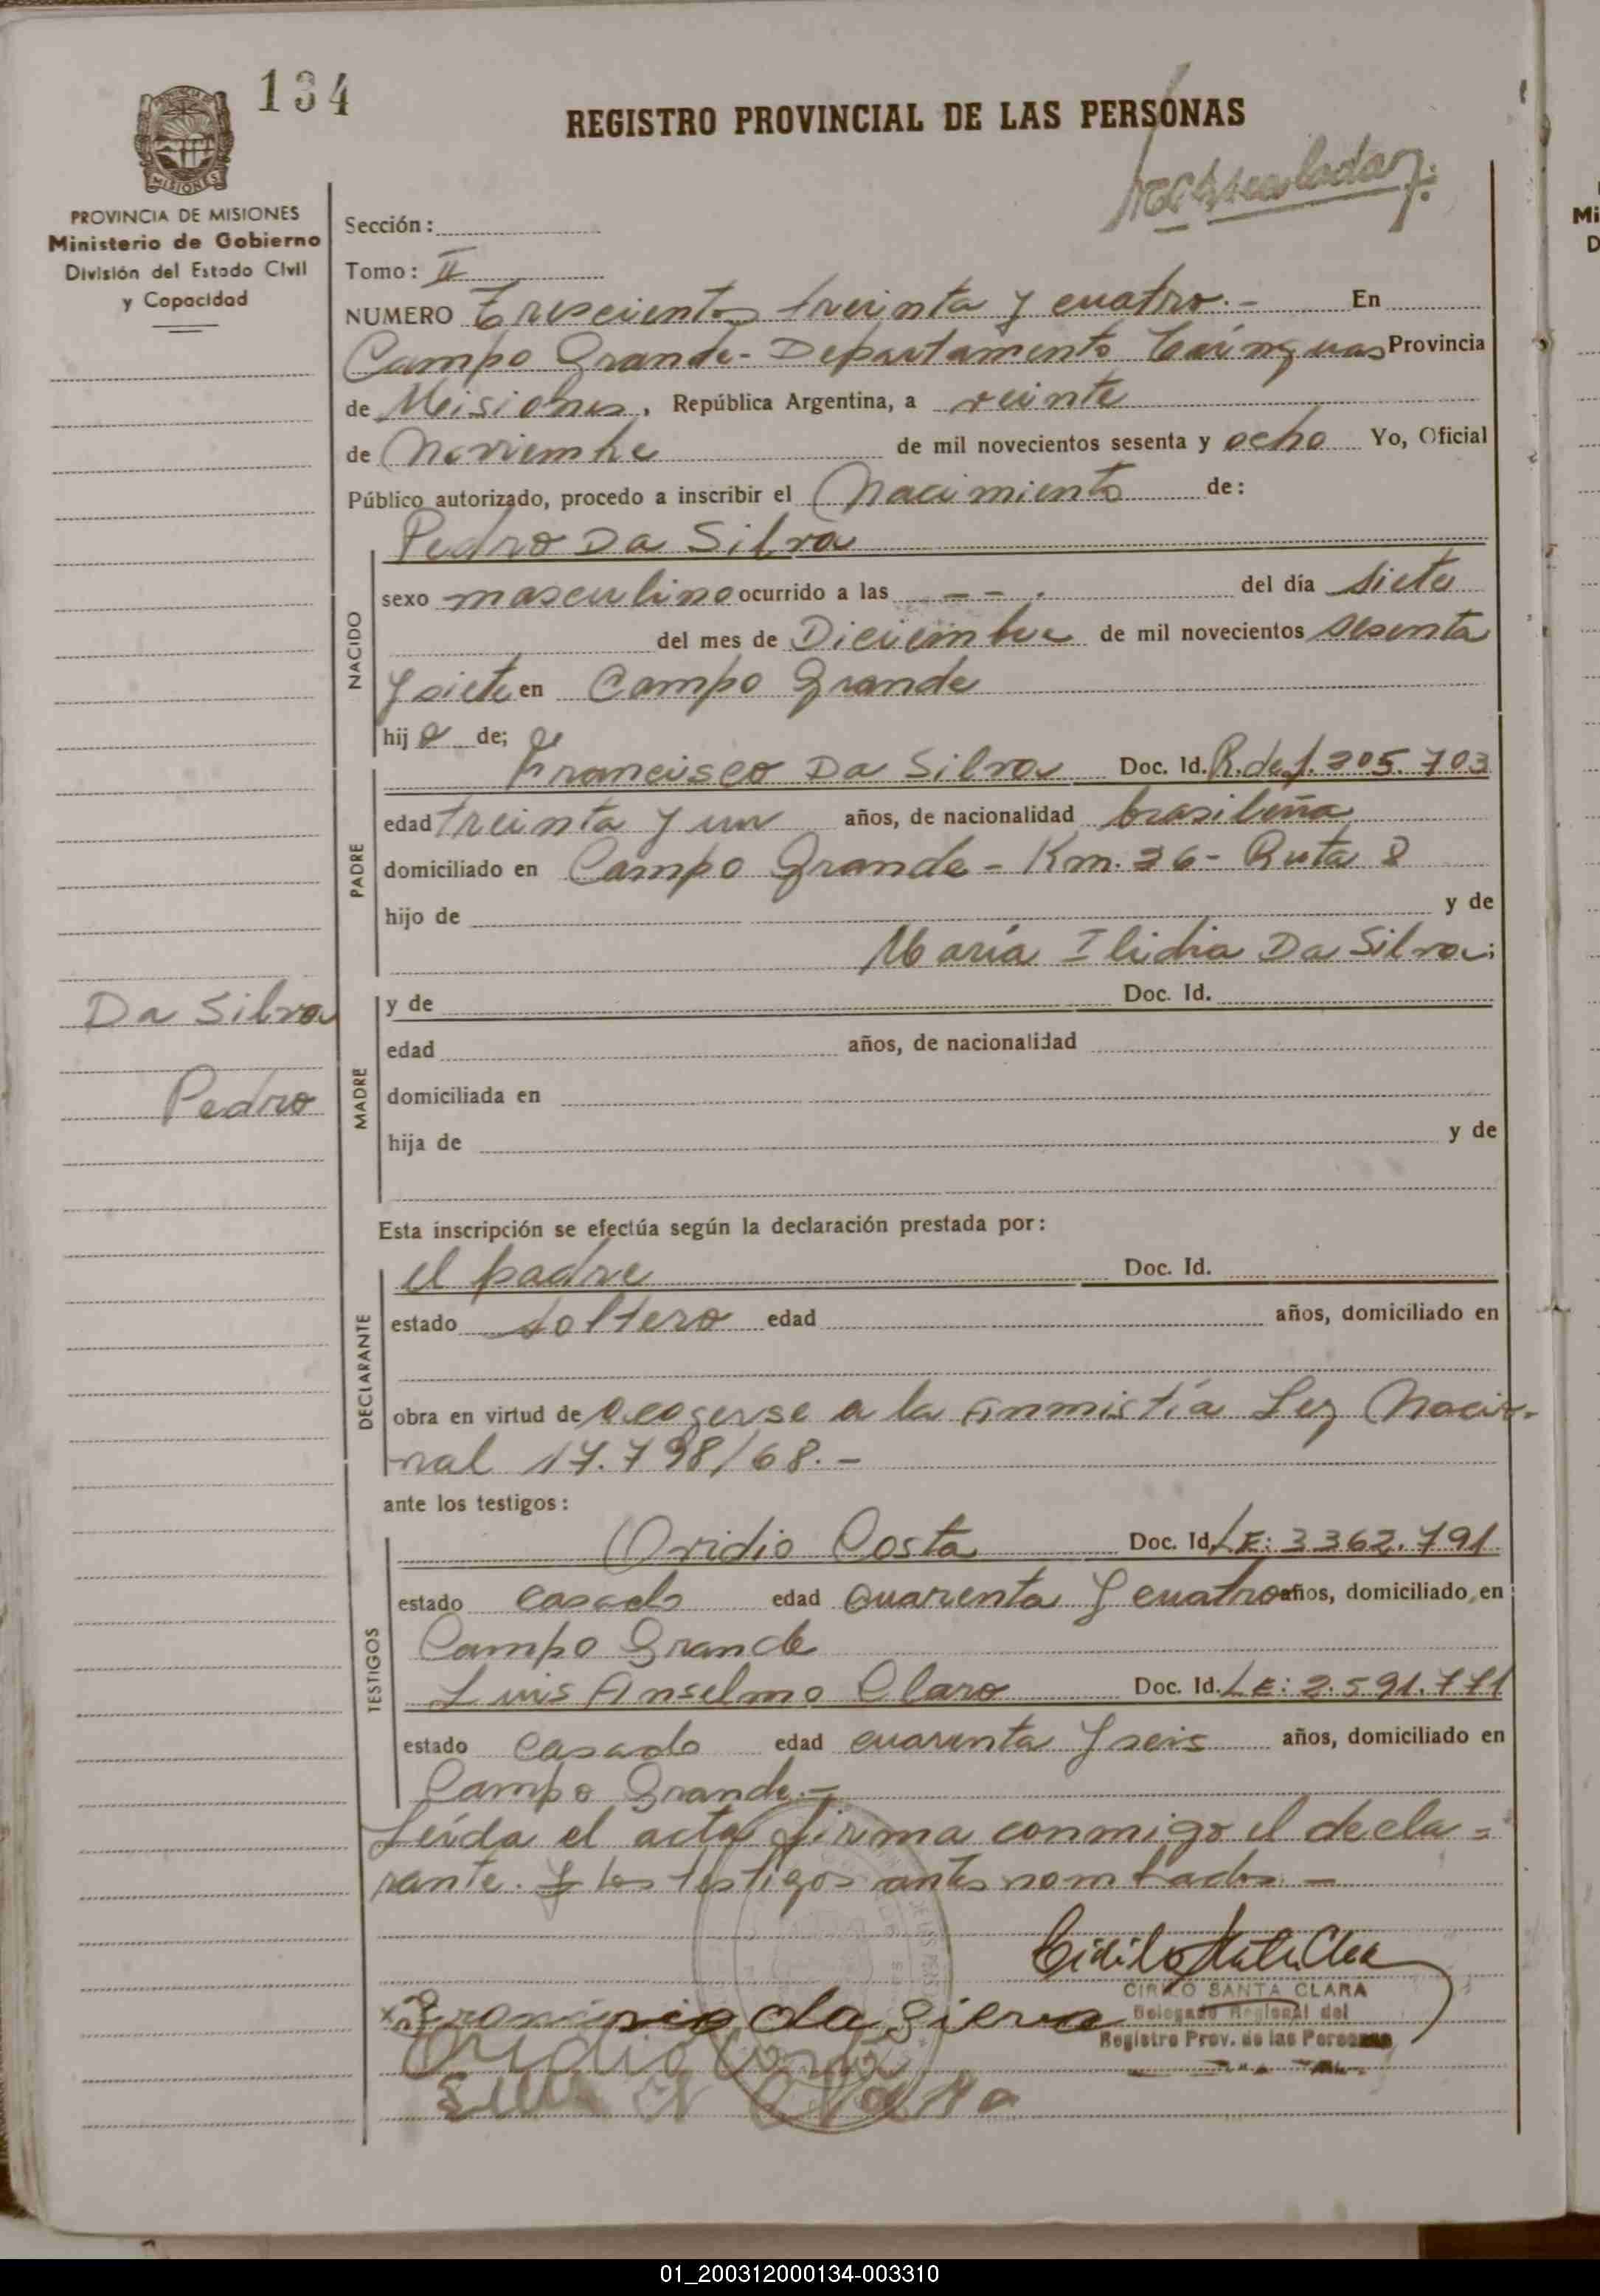 134
REGISTRO PROVINCIAL DE LAS PERSONAS
MISIONES
PROVINCIA DE MISIONES
Ministerio de Gobierno
División del Estado Civil
y Capacidad
Sección:
Tomo: II
NUMERO Trescientos treinta y cuatro.- En
Campo Grande - Departamento Cainguas Provincia
de Misiones, República Argentina, a veinte
de Noviembre de mil novecientos sesenta y ocho Yo, Oficial
Público autorizado, procedo a inscribir el Nacimiento de:
Pedro Da Silva
NACIDO
sexo masculino ocurrido a las - - . del día siete
del mes de Diciembre de mil novecientos sesenta
y siete en Campo Grande
hijo de;
PADRE
Francisco Da Silva Doc. Id. R. de f. 205.703
edad treinta y un años, de nacionalidad brasileña
domiciliado en Campo Grande - Km. 26 - Ruta 8
hijo de y de
María Ilidia Da Silva;
Da Silva
Pedro
MADRE
y de Doc. Id.
edad años, de nacionalidad
domiciliada en
hija de y de
Esta inscripción se efectúa según la declaración prestada por:
DECLARANTE
el padre Doc. Id.
estado soltero edad años, domiciliado en
obra en virtud de acogerse a la Anmistía Ley Nacio-
nal 17.798/68.-
ante los testigos:
TESTIGOS
Ovidio Costa Doc. Id. LE: 3362.791
estado casado edad cuarenta y cuatro años, domiciliado en
Campo Grande
Luis Anselmo Claro Doc. Id. LE: 2.591.771
estado casado edad cuarenta y seis años, domiciliado en
Campo Grande.-
Leída el acta firma conmigo el decla=
rante. y los testigos antes nombrados -
CIRILO SANTA CLARA
Delegado Regional del
Registro Prov. de las Personas
Ovidio Costa
01_200312000134-003310